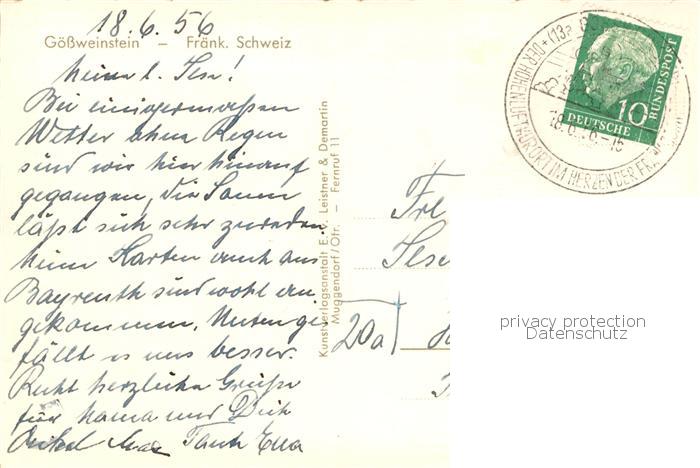 18.6.56
Gößweinstein – Fränk. Schweiz
Meine l. Ilse!
Bei einigermassen
Wetter ohne Regen
sind wir hier hinauf
gegangen, die Sonne
läßt sich sehr zureden.
Meine Karten auch aus
Bayreuth sind wohl an-
gekommen. Unten ge-
fällt es uns besser.
Recht herzliche Grüße
für Mama und Dich
Onkel Max Tante Ella
Kunstverlagsanstalt E. v. Leistner & Demartin
Muggendorf/Ofr. – Fernruf 11
Frl
Ilse
20a
(13a)
DER HÖHENLUFTKURORT IM HERZEN DER
10
DEUTSCHE
BUNDESPOST
privacy protection
Datenschutz